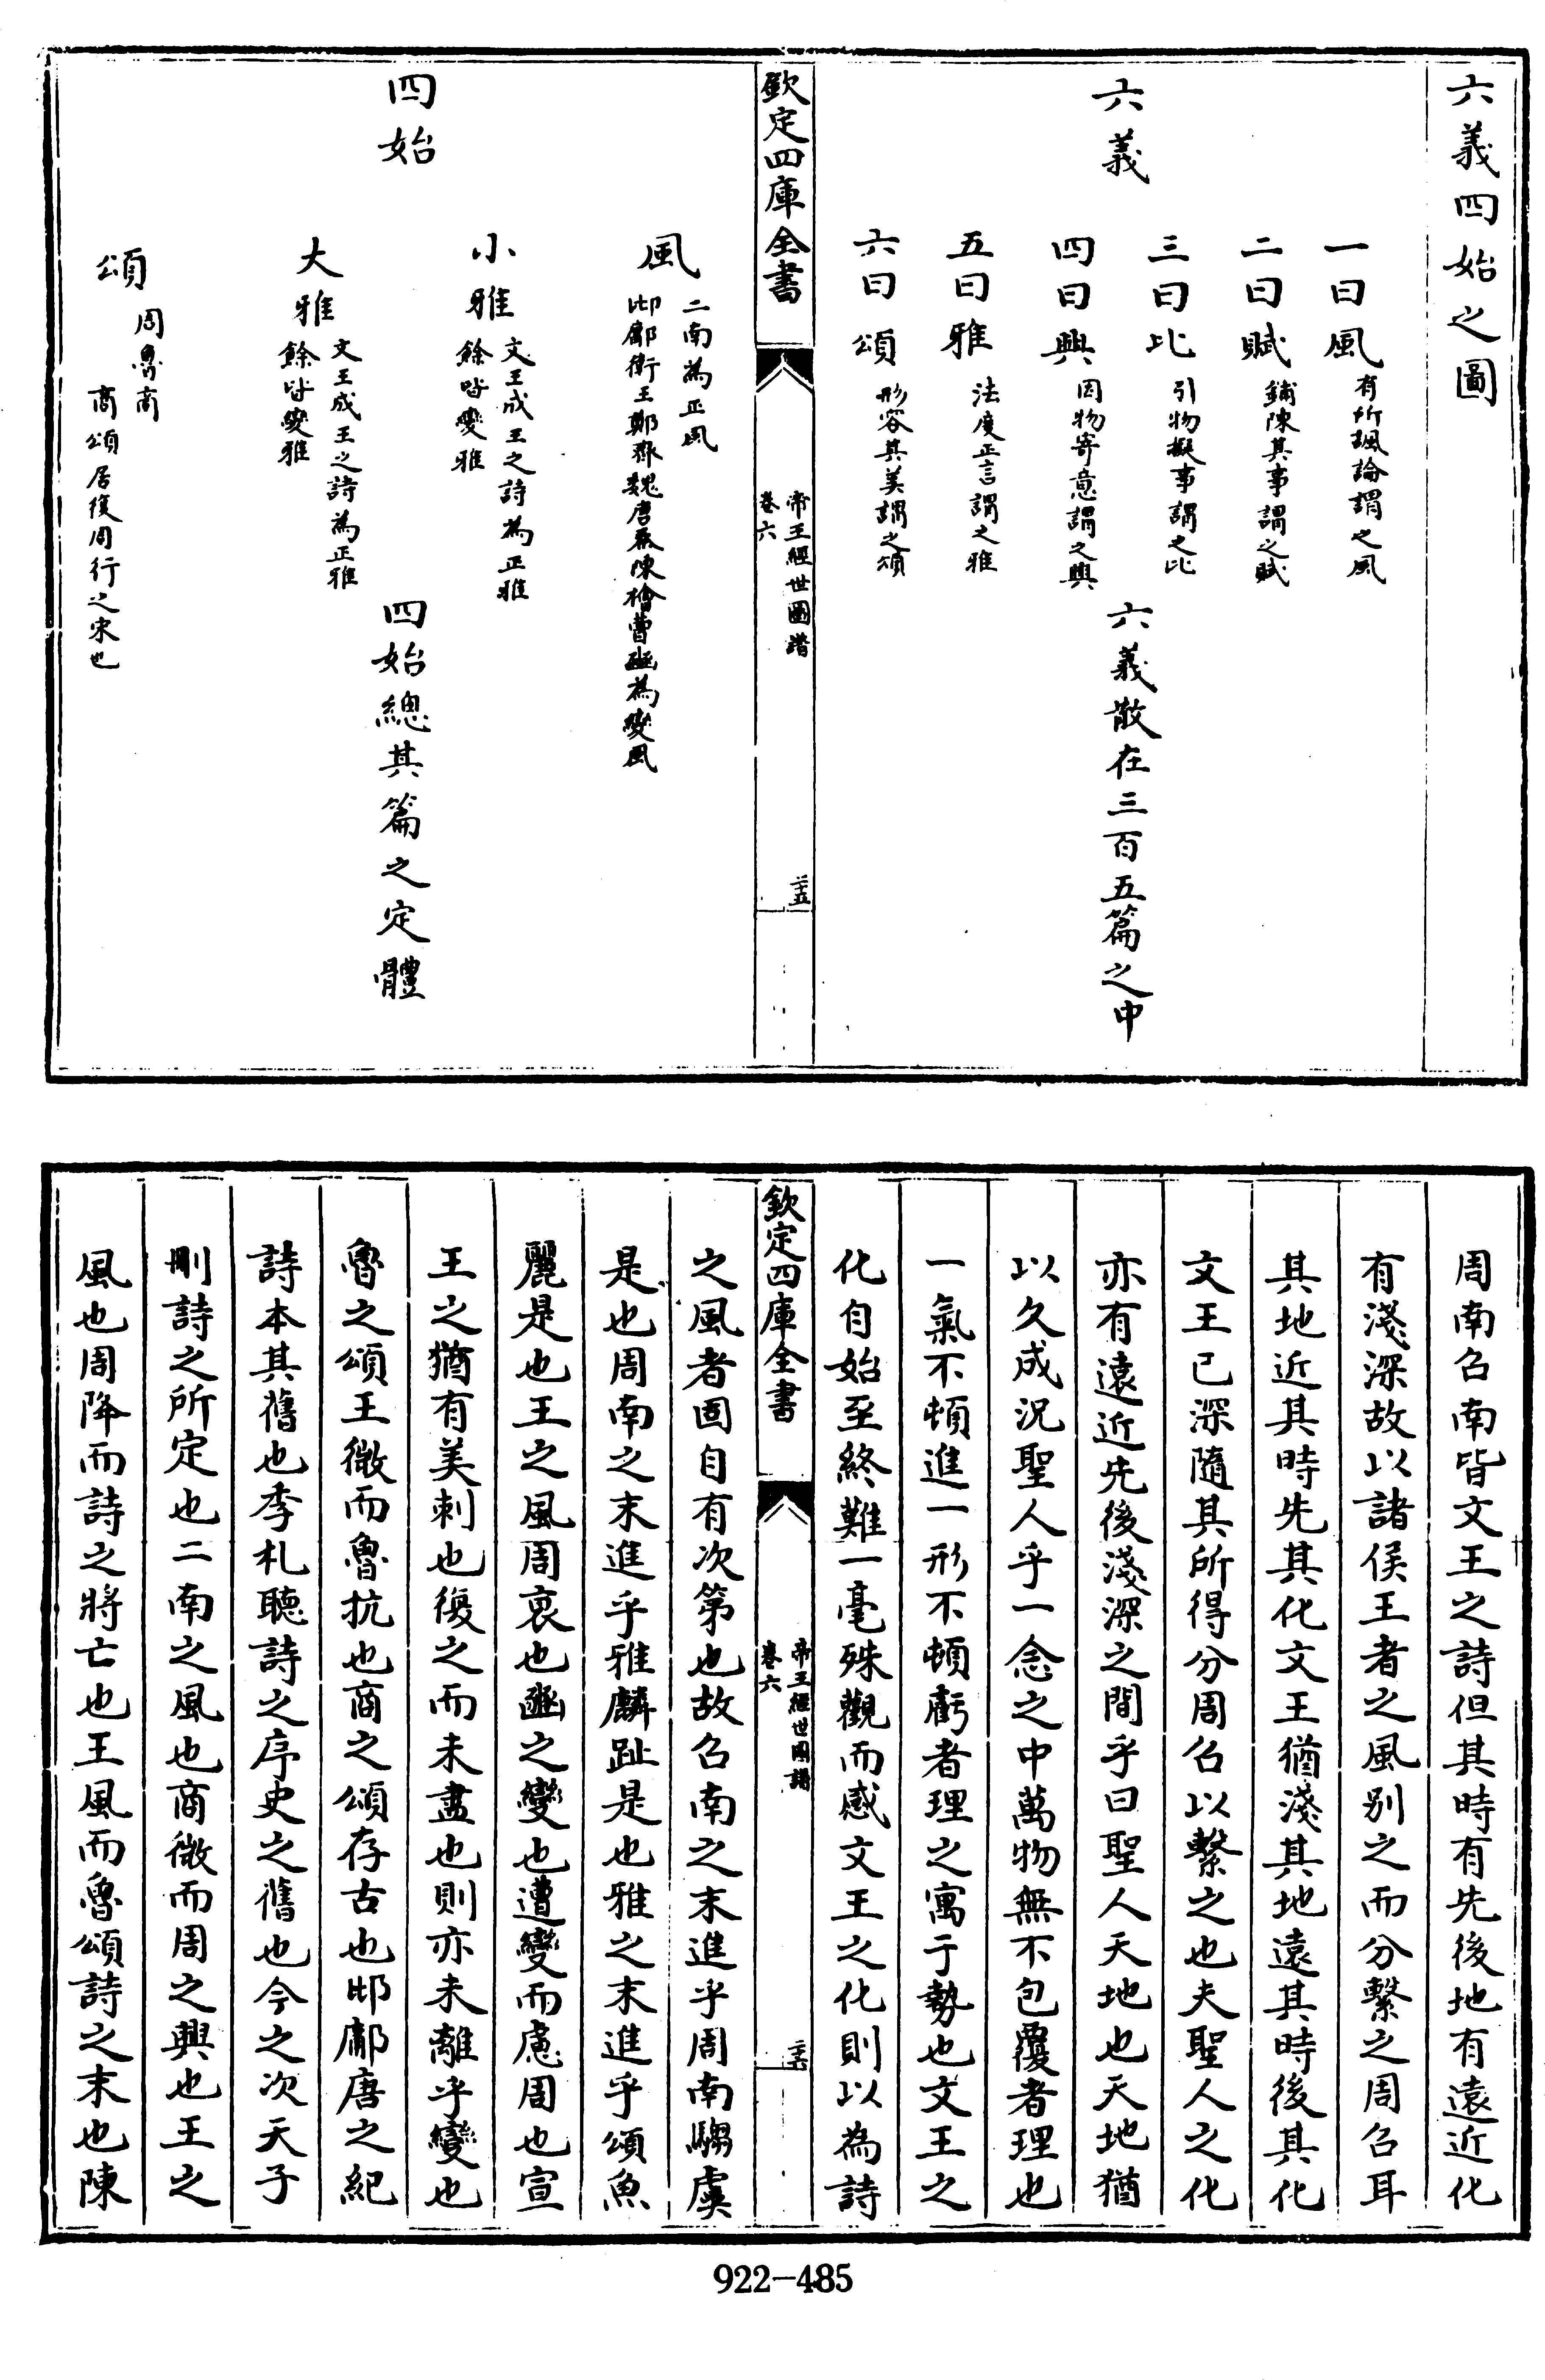 六義四始之圖
六義
一曰風
有所諷論謂之風
二曰賦
鋪陳其事謂之賦
三曰比
引物擬事謂之比
四曰興
因物寄意謂之興
五曰雅
法度正言謂之雅
六曰頌
形容其美謂之頌
六義散在三百五篇之中
欽定四庫全書
帝王經世圖譜
卷六
二十五
四始
風
二南為正風
邶鄘衛王鄭齊魏唐秦陳檜曹豳為變風
小雅
文王成王之詩為正雅
餘皆變雅
大雅
文王成王之詩為正雅
餘皆變雅
頌
周魯商
商頌居後周行之宋也
四始總其篇之定體
周南召南皆文王之詩但其時有先後地有遠近化
有淺深故以諸侯王者之風别之而分繫之周召耳
其地近其時先其化文王猶淺其地遠其時後其化
文王已深隨其所得分周召以繫之也夫聖人之化
亦有遠近先後淺深之間乎曰聖人天地也天地猶
以久成況聖人乎一念之中萬物無不包覆者理也
一氣不頓進一形不頓虧者理之寓于勢也文王之
化自始至終難一毫殊觀而感文王之化則以為詩
欽定四庫全書
帝王經世圖譜
卷六
二十六
之風者固自有次第也故召南之末進乎周南騶虞
是也周南之末進乎雅麟趾是也雅之末進乎頌魚
麗是也王之風周衰也豳之變也遭變而慮周也宣
王之猶有美刺也復之而未盡也則亦未離乎變也
魯之頌王微而魯抗也商之頌存古也邶鄘唐之紀
詩本其舊也季札聽詩之序史之舊也今之次天子
刪詩之所定也二南之風也商微而周之興也王之
風也周降而詩之將亡也王風而魯頌詩之末也陳
922-485